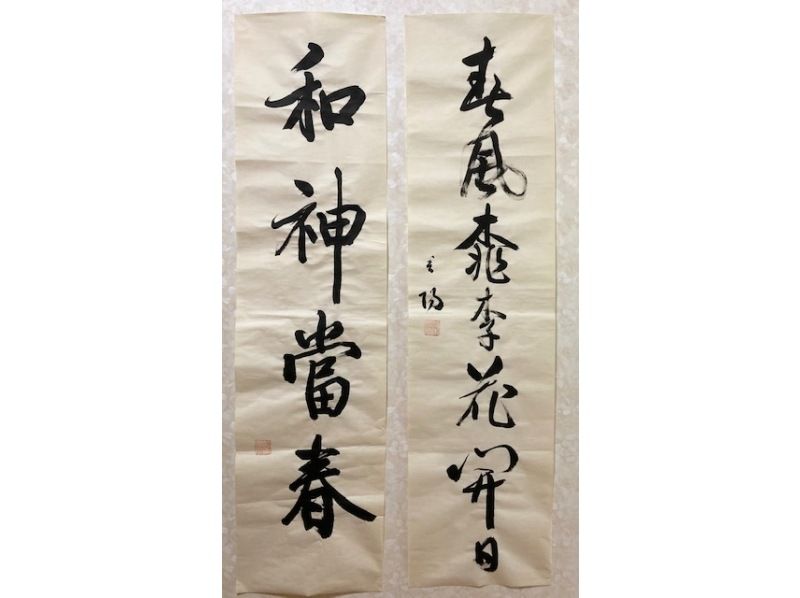 春風桃李花開日
和神當春